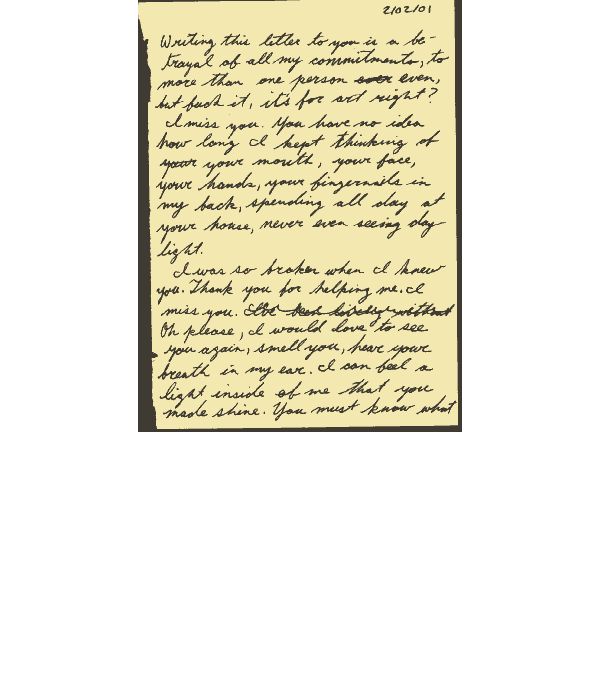 2/02/01
Writing this letter to you is a be-
trayal of all my commitments, to
more than one person even,
but fuck it, it's for art right?
I miss you. You have no idea
how long I kept thinking of
your your mouth, your face,
your hands, your fingernails in
my back, spending all day at
your house, never even seeing day-
light.
I was so broken when I knew
you. Thank you for helping me. I
miss you. I've been lonely without
Oh please, I would love to see
you again, smell you, hear your
breath in my ear. I can feel a
light inside of me that you
made shine. You must know what